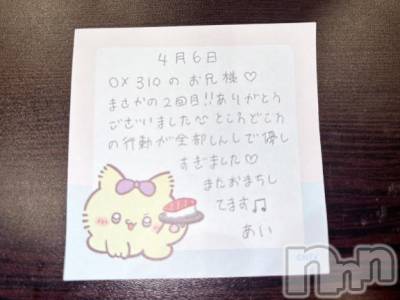 4月6日
OX 310のお兄様♡
まさかの2回目!!ありがとう
ございました〜ところどころ
の行動が全部しんしで優し
すぎました♡
またおまちし
てます♫
あい
nnn